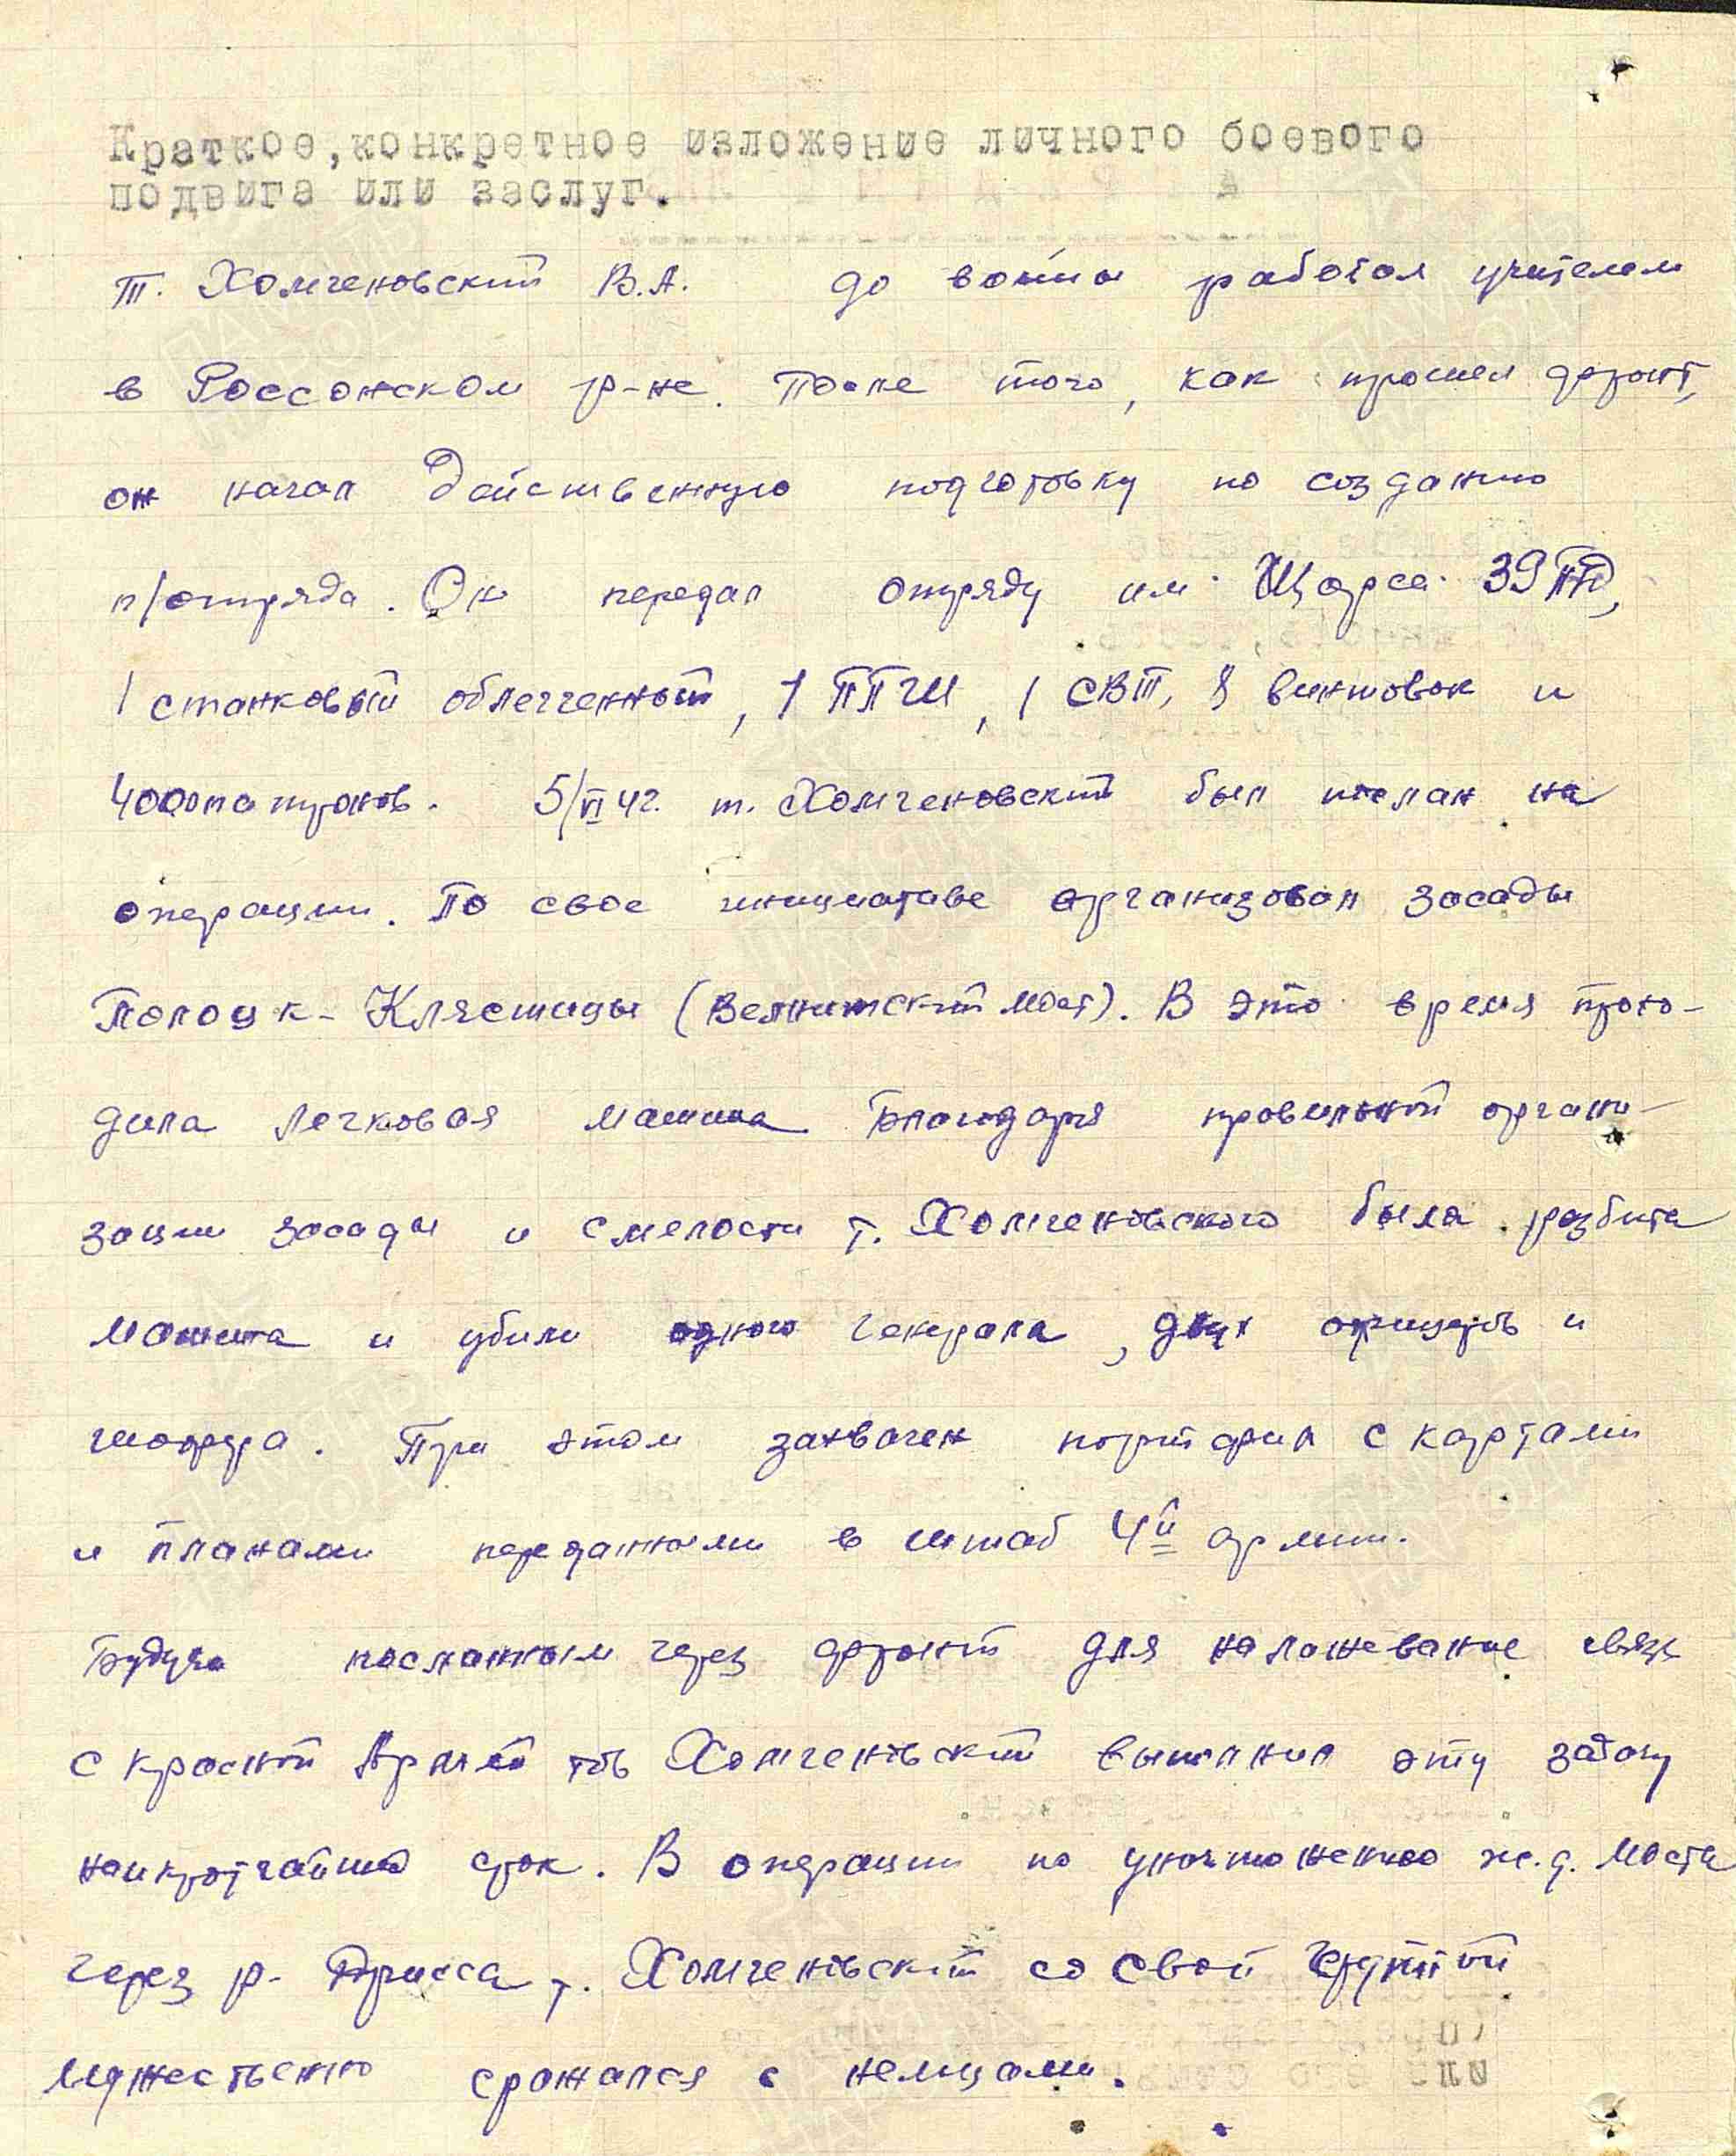 Краткое,конкретное изложение личного боевого
подвига или заслуг.
Т. Хомченовский В.А. до войны работал учителем
в Россонском р-не. После того, как прошел фронт,
он начал действенную подготовку по созданию
п/отряда. Он передал отряду им. Щорса 39
1 станковый облегченный, 1 ППШ, 1 СВТ, 8 винтовок и
4000 патронов. 5/VI 42. т. Хомченовский был послан на
операции. По свое инициативе организовал засады
Полоцк-Клястицы ( мост). В это время прохо-
дила легковая машина Благодаря правильной органи-
зации засады и смелости т. Хомченовского была разбита
машина и убили одного генерала, двух офицеров и
шофера. При этом захвачен портфил с картами
и планами переданными в штаб 4й армии.
Будучи посланным через фронт для налаживание связь
с красной Армией тов Хомченовский выполнил эту задачу
наикротчайший срок. В операции по уничтожению ж.д. моста
через р. Дрисса т. Хомченовский со свой группой
мужественно сражался с немцами.